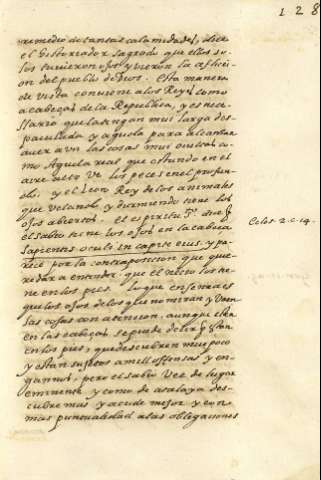 128
remedio de tantas calamidades, dice
el Historiador sagrado que ellos so-
los tuvieron ojos y vieron la aflicci-
on del pueblo de Dios. Esta manera
de vista conviene a los Reyes como
a cabeças de la Republica, y es nece-
ssario que la tengan mui larga des-
pavilada y aguda para alcançar
a ver aun las cosas mui ocultas co-
mo Aquila real que estando en el
aire alto ve los peces en el profun-
do: y el Leon Rey de los animales
que velando y durmiendo tiene los
ojos abiertos. el espiritu
el sabio tiene los ojos en la cabeça
sapientis oculi in capite eius. y pa-
rece por la contraposicion que que-
rra dar a entender que el necio los tie-
ne en los pies. lo que enseña es
que los ojos de los que no miran y ven
las cosas con atencion, aunque esten
en las cabeças se puede deçir q estan
en los pies, que descubren mui poco
y estan sujetos a mill ofensas y en-
gaños, pero el sabio vee de lugar
eminente y como de atalaya des-
cubre mas y acude mejor y con
mas puntualidad a las obligaciones
Ecles. 2. c. 14.